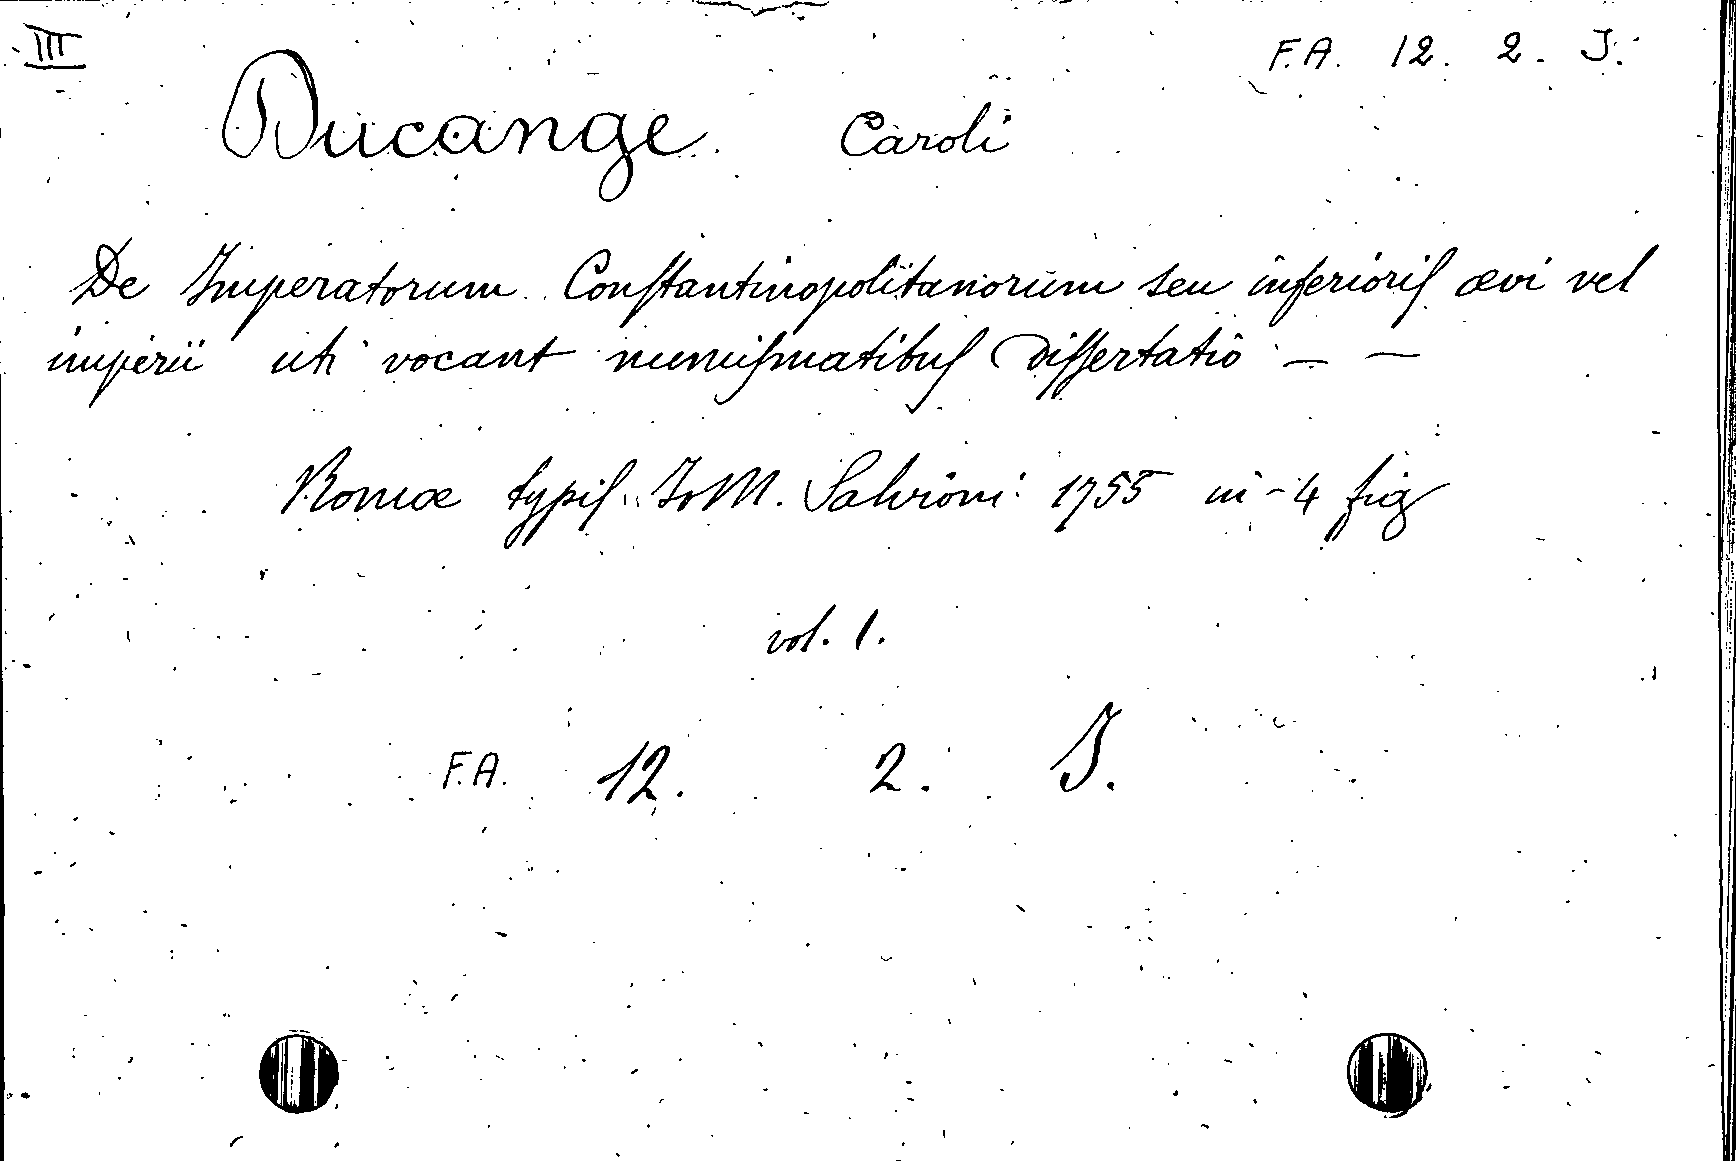 III F.A. 12. 2. J.
Ducange Caroli
De Imperatorum Conſtantinopolitanorum seu inferioriſ ævi vel
imperii uti vocant numiſmatibuſ Diſſertatio — —
Romæ typiſ Jo M. Salvioni 1755 in-4 fig
vol. 1.
F.A. 12. 2. J.